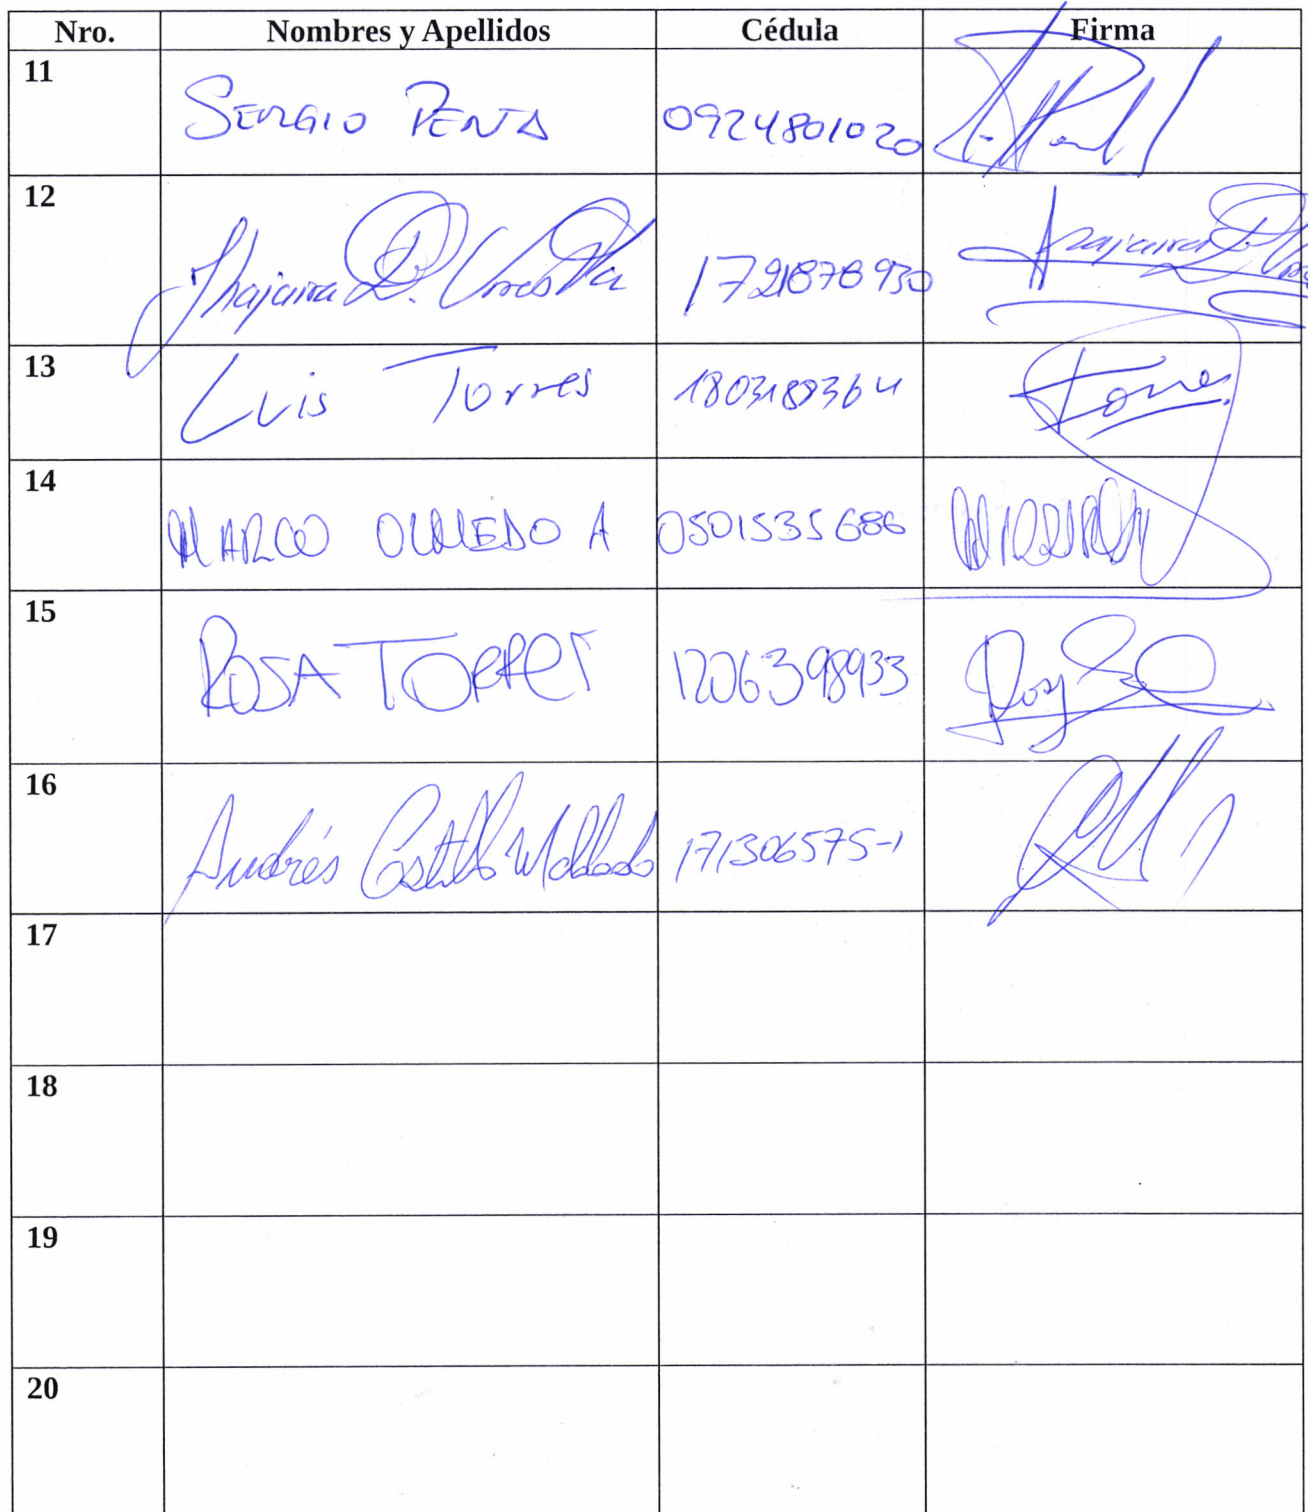 Nro. Nombres y Apellidos Cédula Firma
11 SERGIO PEÑA 0924801020
12 Jhajaira D. 1721878930
13 Luis Torres 1803188364 Torres
14 MARCO OLMEDO A 0501535686
15 ROSA TORRES 1206398933 Rosa
16 Andrés Castillo Maldonado 171306575-1
17
18
19
20